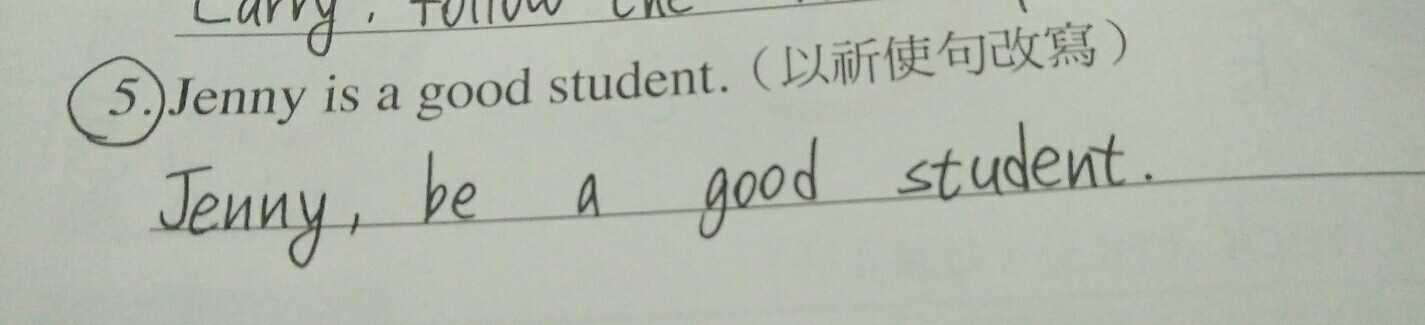 Larry, follow the
5. Jenny is a good student.（以祈使句改寫）
Jenny, be a good student.